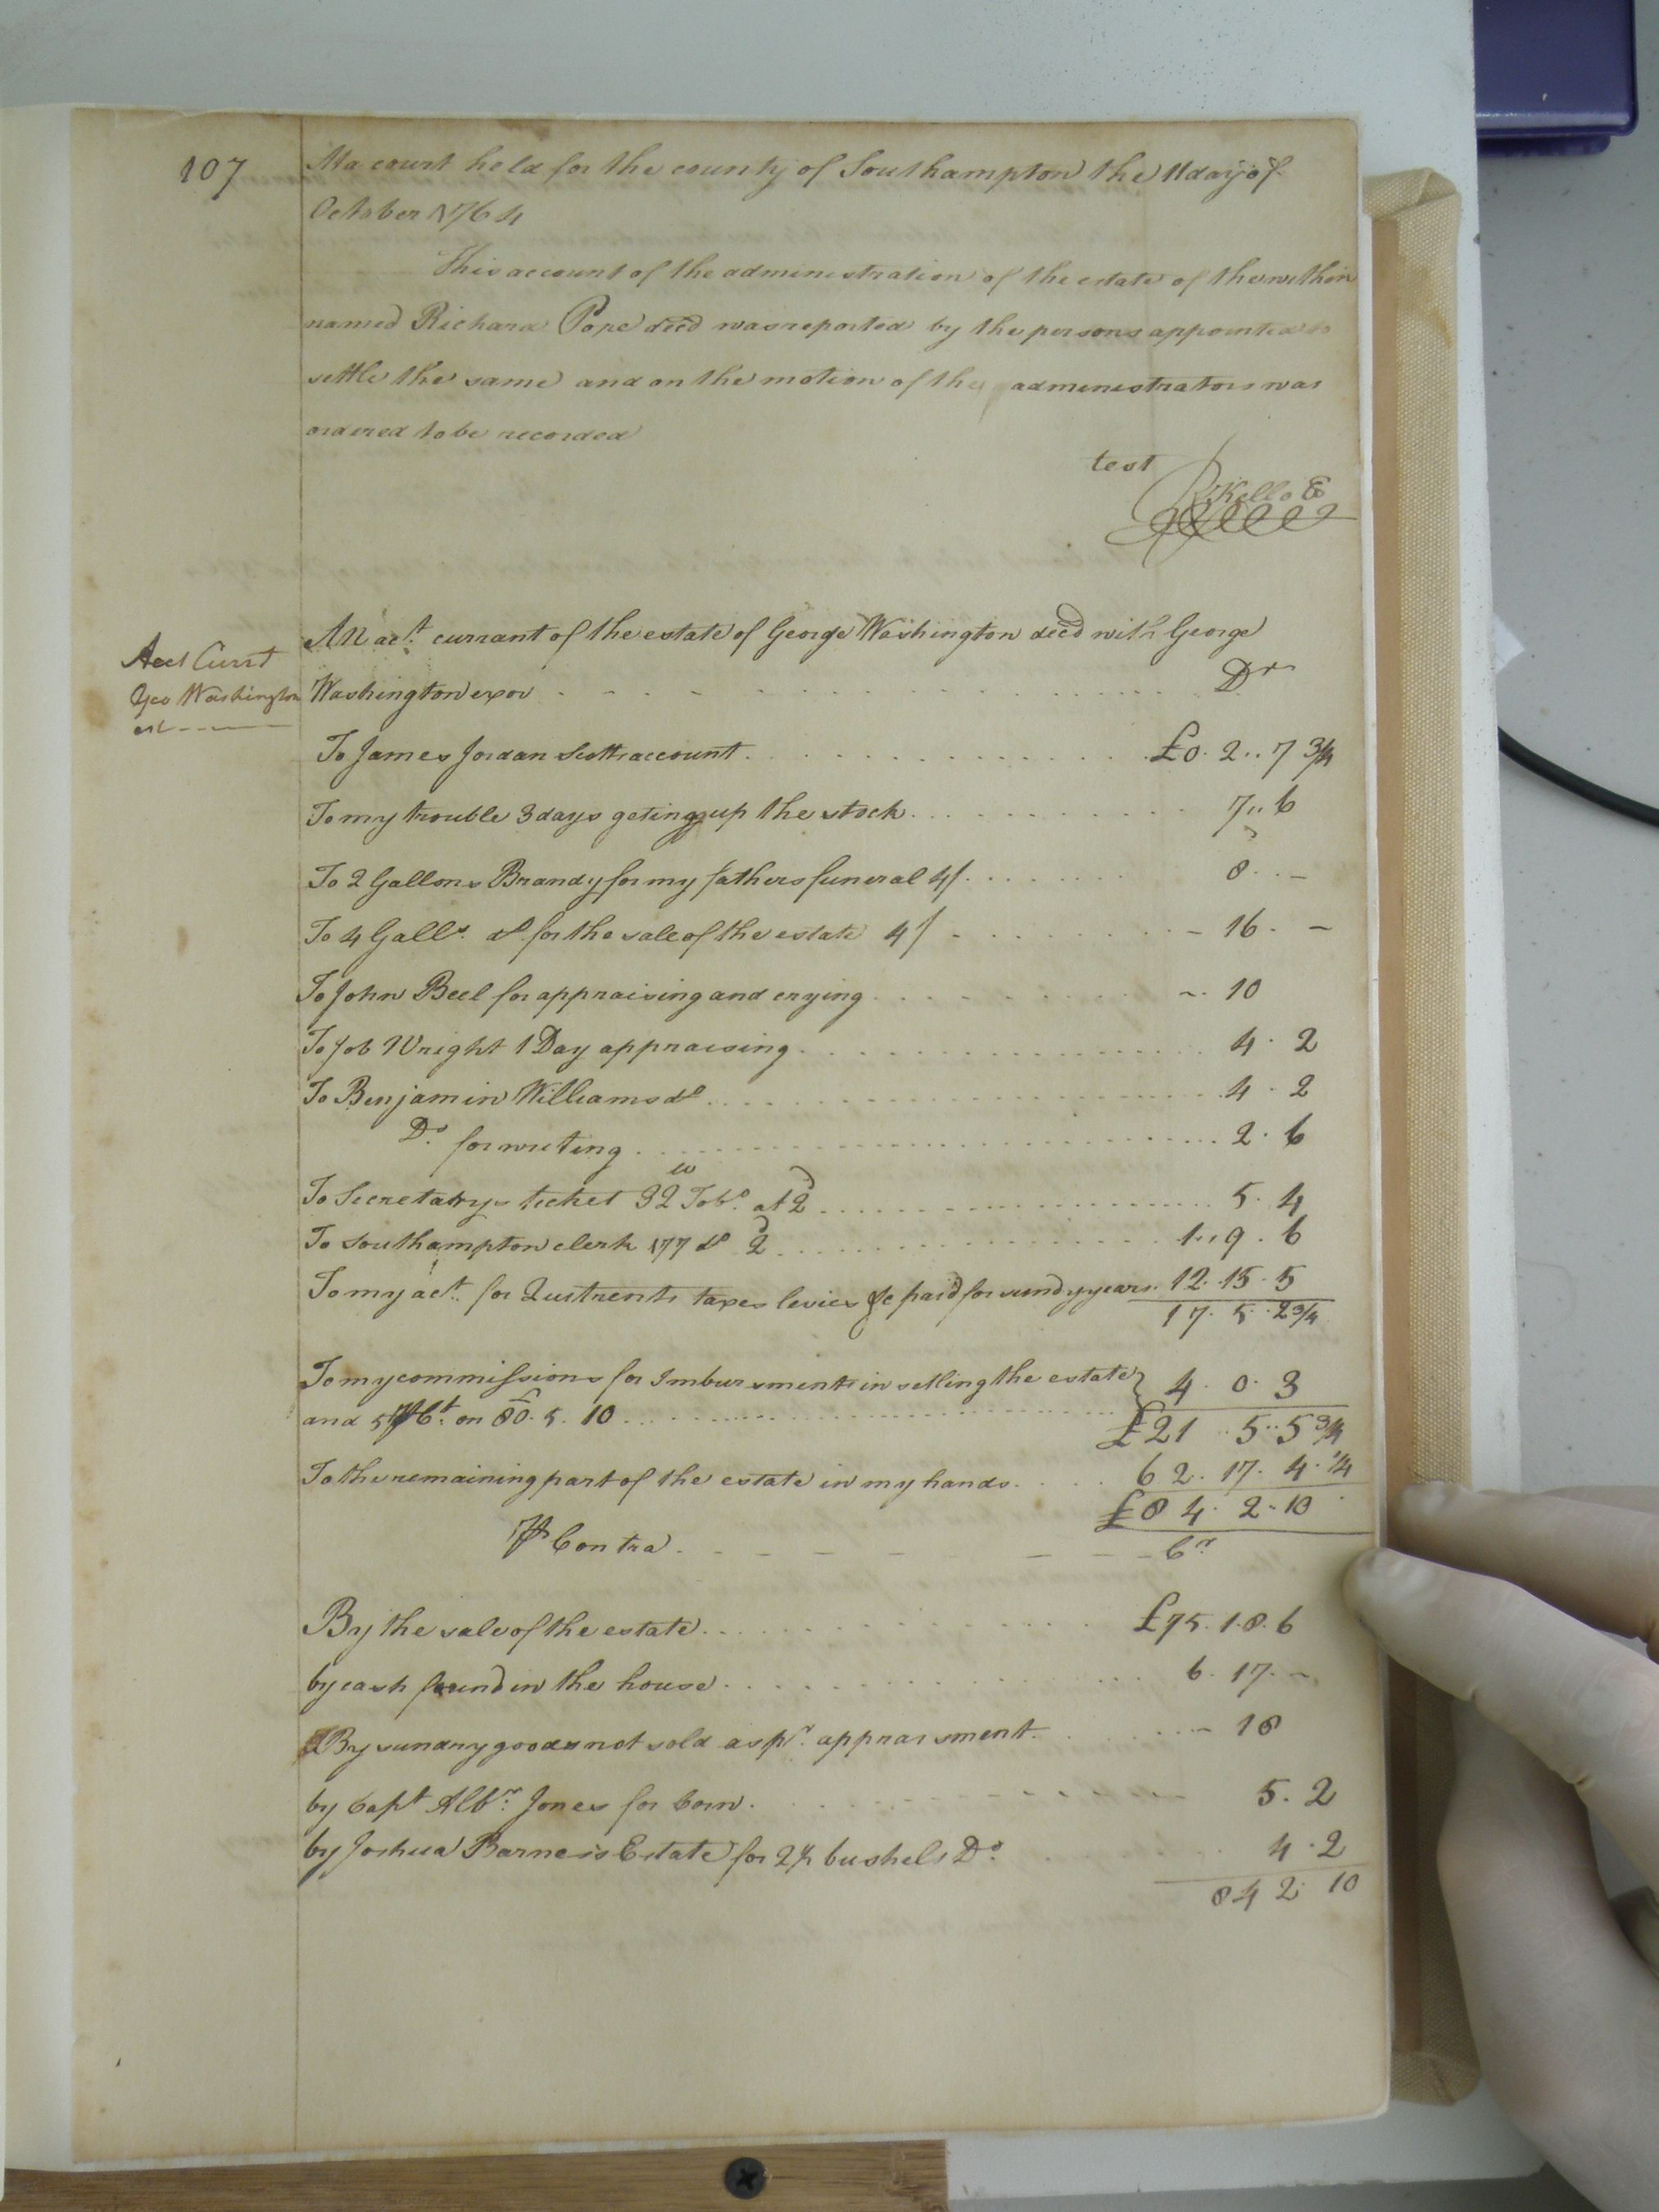 107
At a court held for the county of Southampton the 11 day of
October 1764
This account of the administration of the estate of the within
named Richard Pope decd was reported by the persons appointed to
settle the same and on the motion of the administrators was
ordered to be recorded
test
R Kello
Acct Currt
Geo Washington
est
An acct. currant of the estate of George Washington decd with George
Washington exor Dr
To James Jordan Scotts account £0. 2.. 7 3/4
To my trouble 3 days geting up the stock 7.. 6
To 2 Gallons Brandy for my fathers funeral 4/. 8 .. -
To 4 Galls. do. for the sale of the estate 4/ - 16. -
To John Beel for appraising and crying 10
To Job Wright 1 Day appraising 4. 2
To Benjamin Williams do 4. 2
Do. for writing 2. 6
To Secretarys ticket 32 w Tobo. at 2d 5. 4
To Southampton clerk 177 do 2d 1.. 9. 6
To my act. for Quitrents taxes levies &c paid for sundry years 12. 15. 5
17. 5. 2 3/4
To my commissions for Imbursments in selling the estate } 4. 0. 3
and 5 P Ct. on £80. 5. 10
£21 .. 5.. 5 3/4
To the remaining part of the estate in my hands 62. 17. 4. 1/4
£84. 2. 10
P Contra Cr
By the sale of the estate £75. 18. 6
by cash found in the house 6. 17. -
By sundry goods not sold as pr. appraisment - 18
by Capt Albr. Jones for Corn 5. 2
by Joshua Barnes's Estate for 2½ bushels Do. 4. 2
84 2 10